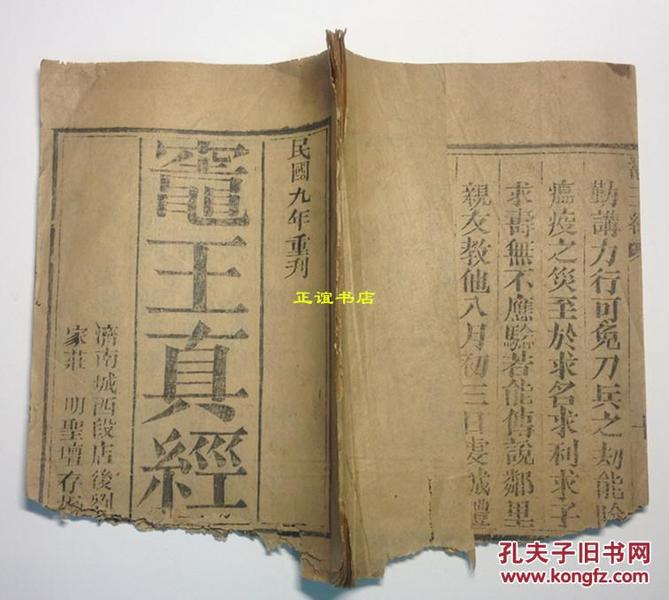 民國九年重刋
竈王真經
濟南城西段店後劉
家莊 明聖壇存板
竈王經
勤講力行可免刀兵之劫能除
瘟疫之災至於求名求利求子
求壽無不應驗若能傳說鄰里
親友教他八月初三日虔誠禮
正谊书店
孔夫子旧书网
www.kongfz.com